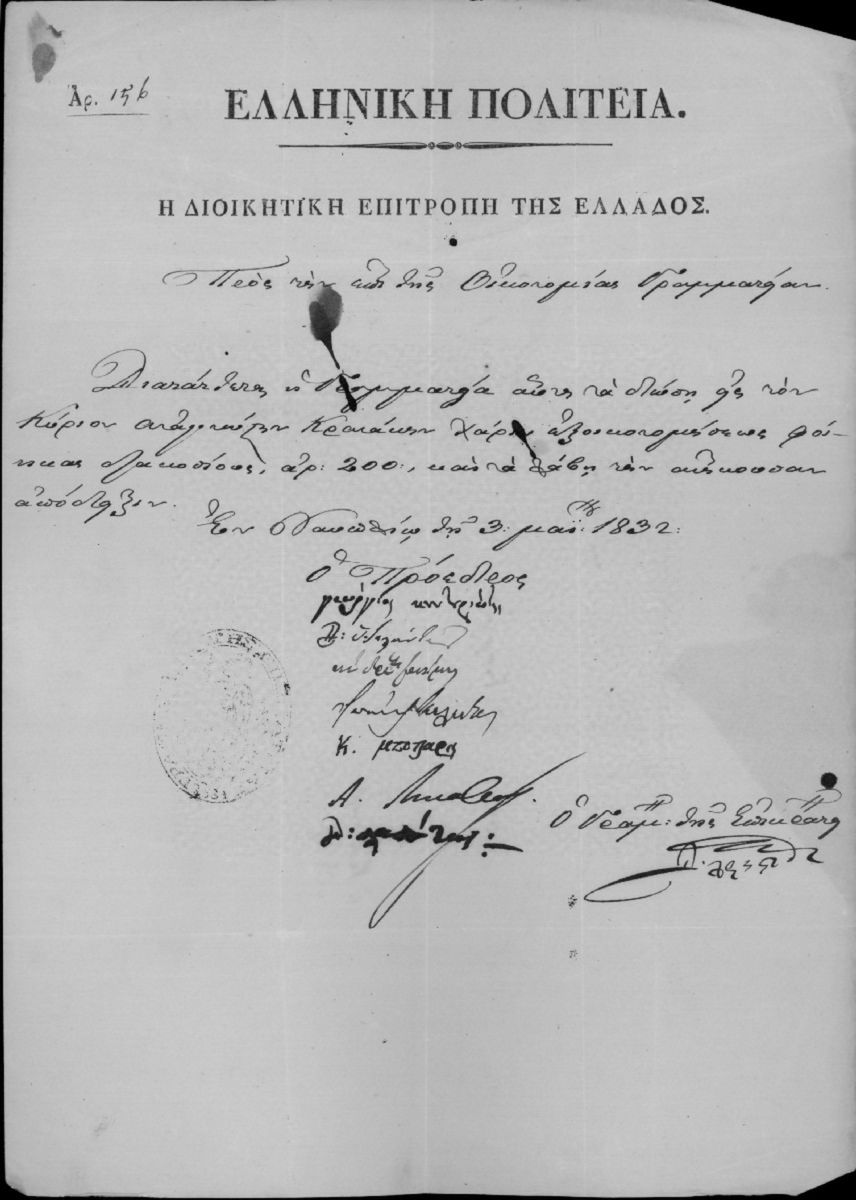 Ἀρ. 156
ΕΛΛΗΝΙΚΗ ΠΟΛΙΤΕΙΑ.
Η ΔΙΟΙΚΗΤΙΚΗ ΕΠΙΤΡΟΠΗ ΤΗΣ ΕΛΛΑΔΟΣ.
Πρὸς τὴν ἐπὶ τῆς Οἰκονομίας Γραμματείαν.
Διατάττεται ἡ Γραμματεία αὕτη νὰ δώσῃ εἰς τὸν
Κύριον Κρατάκην χάριν ἐξοικονομήσεως φοί-
νικας διακοσίους, ἀρ: 200:, καὶ νὰ λάβῃ τὴν ἀνήκουσαν
ἀπόδειξιν.
Ἐν Ναυπλίῳ τῇ 3: μαΐου 1832:
Ὁ Πρόεδρος
γεώργιος κουντουριώτης
Κ. μπότζαρης
Ὁ Γραμ: τῆς Ἐπικρατείας